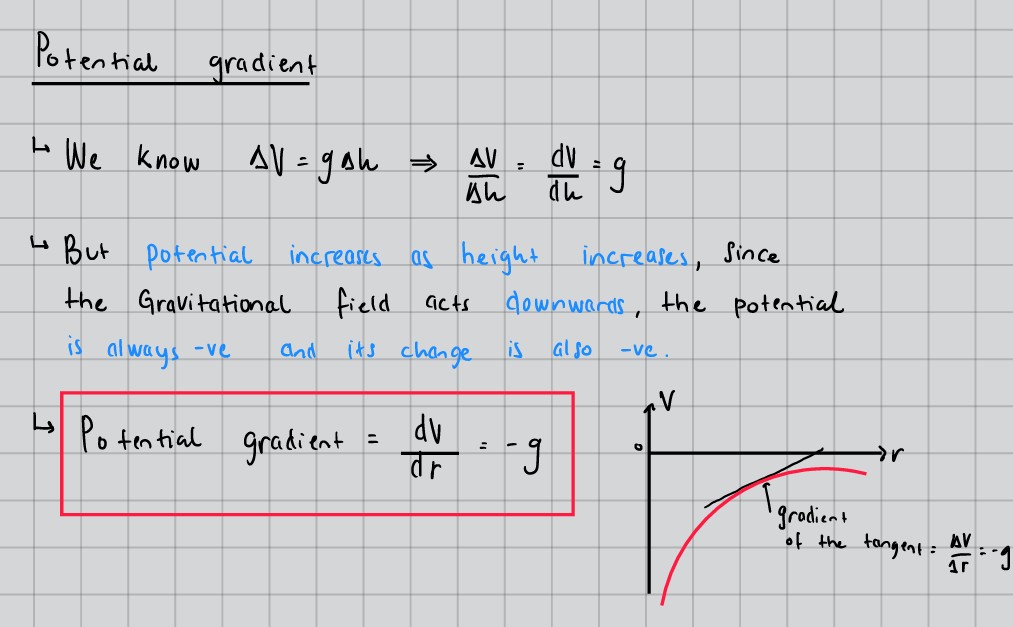 Potential gradient
↳ We know ΔV = gΔh ⇒ ΔV/Δh = dV/dh = g
↳ But potential increases as height increases, since
the Gravitational field acts downwards, the potential
is always -ve and its change is also -ve.
↳ Potential gradient = dV/dr = -g
V
0
r
gradient
of the tangent = ΔV/Δr = -g